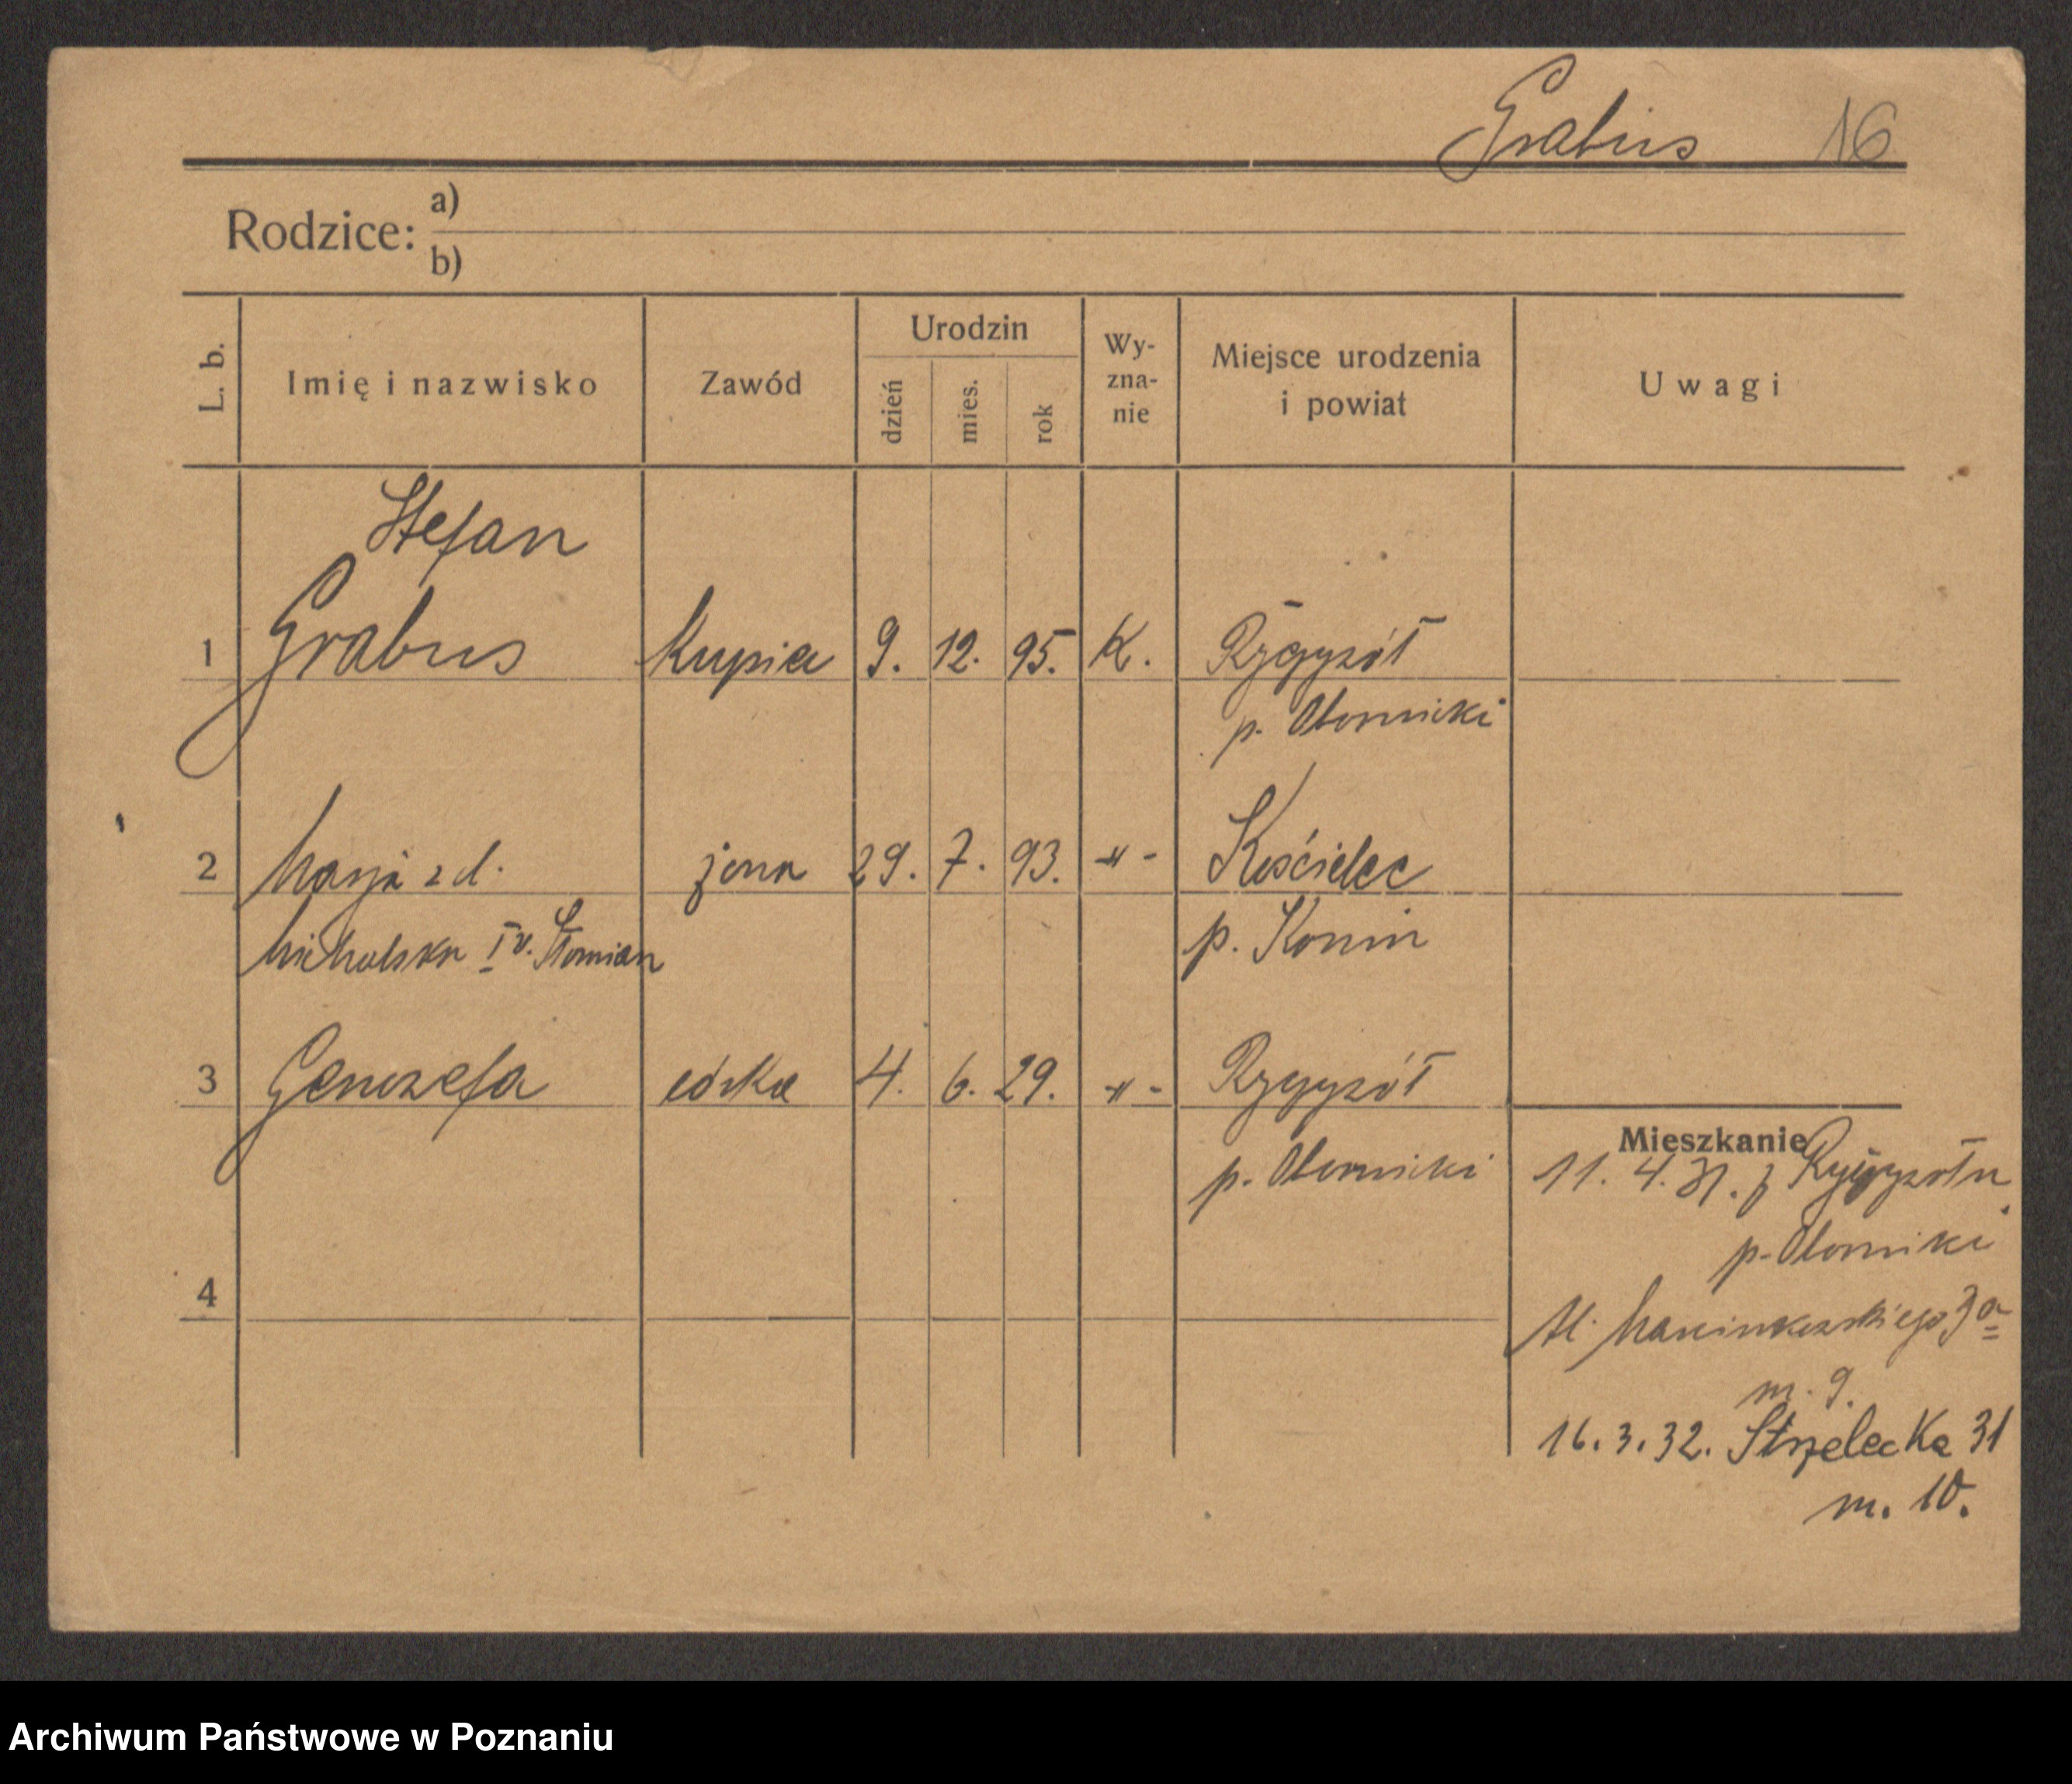 Grabus 16
Rodzice: a)
b)
L. b.
Imię i nazwisko
Zawód
Urodzin
dzień
mies.
rok
Wy-
zna-
nie
Miejsce urodzenia
i powiat
Uwagi
Stefan
1 Grabus kupiec 9. 12. 95. K.
p. Obornicki
2 Marja z d. żona 29. 7. 93. -"- Kościelec
Michalska I v. Słomian p. Konin
3 Genowefa córka 4. 6. 29. -"-
p. Obornicki
Mieszkanie
11. 4. 31. z
p. Obornicki
Al. Marcinkowskiego 3a
m. 9.
4
16. 3. 32. Strzelecka 31
m. 10.
Archiwum Państwowe w Poznaniu